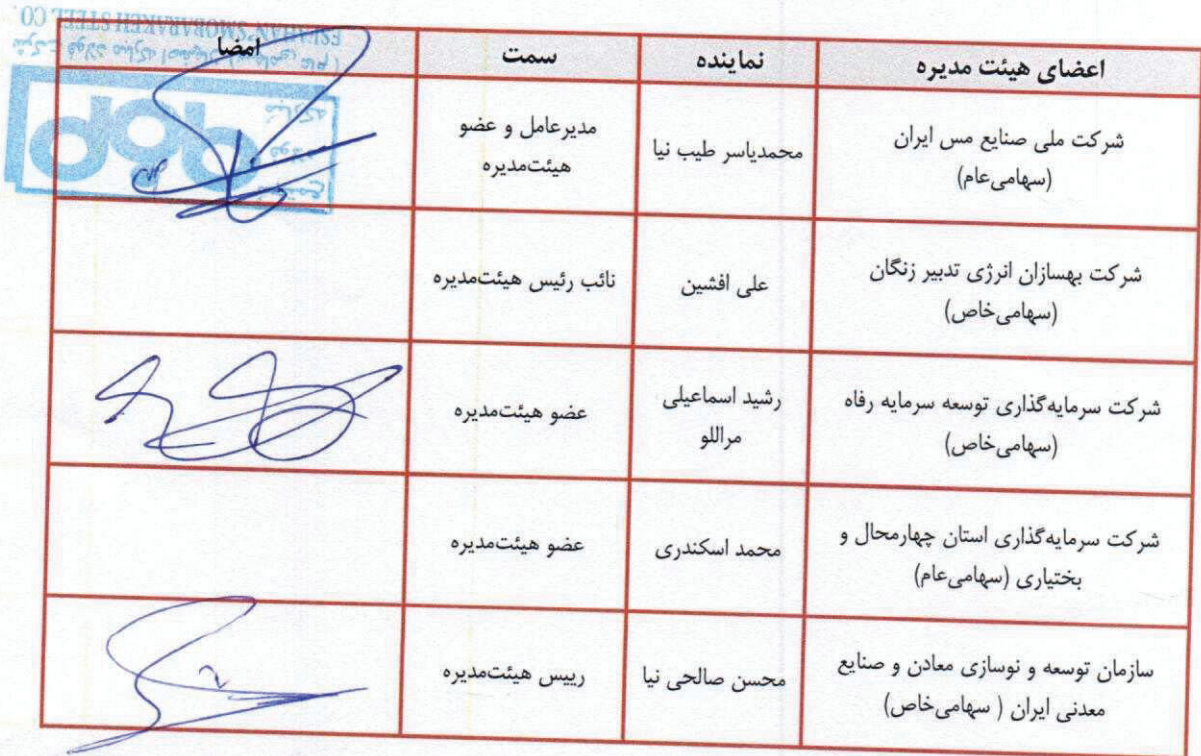 ESFAHAN'S MOBARAKEH STEEL CO.
اعضای هیئت مدیره نماینده سمت امضا
شرکت ملی صنایع مس ایران
(سهامی‌عام)
محمدیاسر طیب نیا
مدیرعامل و عضو
هیئت‌مدیره
شرکت بهسازان انرژی تدبیر زنگان
(سهامی‌خاص)
علی افشین
نائب رئیس هیئت‌مدیره
شرکت سرمایه‌گذاری توسعه سرمایه رفاه
(سهامی‌خاص)
رشید اسماعیلی
مراللو
عضو هیئت‌مدیره
شرکت سرمایه‌گذاری استان چهارمحال و
بختیاری (سهامی‌عام)
محمد اسکندری
عضو هیئت‌مدیره
سازمان توسعه و نوسازی معادن و صنایع
معدنی ایران ( سهامی‌خاص)
محسن صالحی نیا
رییس هیئت‌مدیره